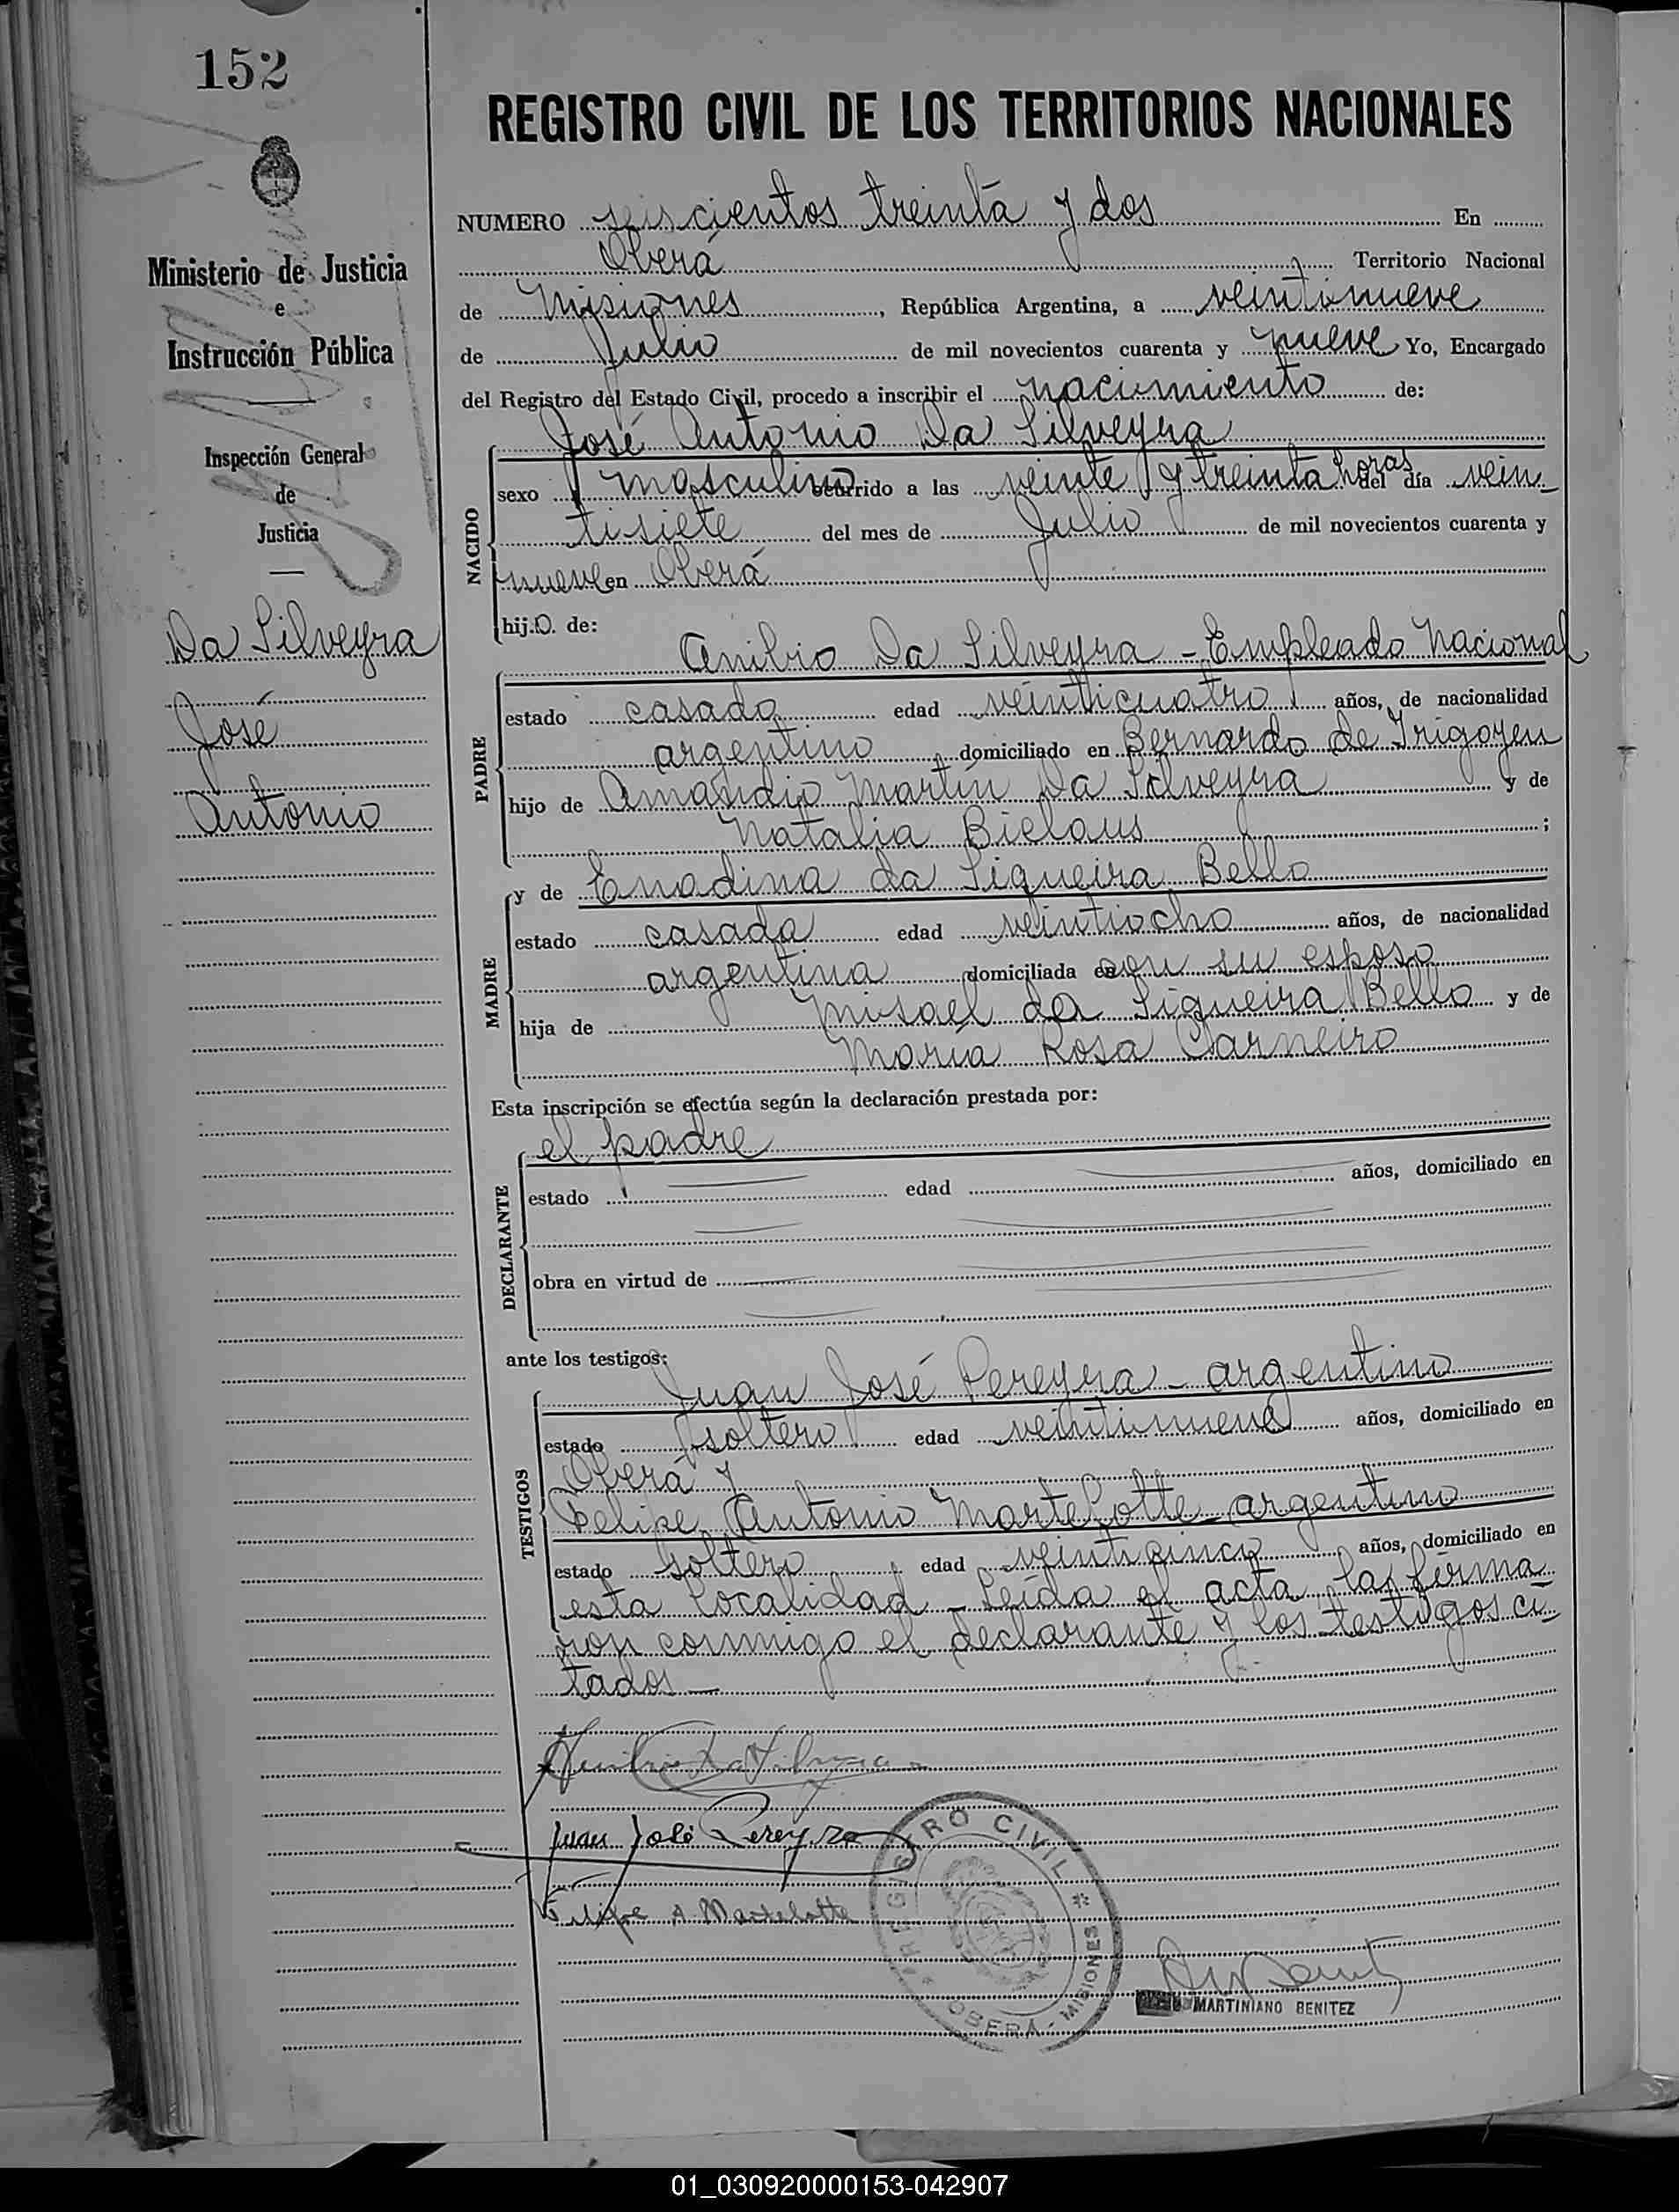 152
REGISTRO CIVIL DE LOS TERRITORIOS NACIONALES
Ministerio de Justicia
e
Instrucción Pública
Inspección General
de
Justicia
Da Silveyra
José
Antonio
NUMERO seiscientos treinta y dos En
Oberá Territorio Nacional
de Misiones, República Argentina, a veintinueve
de Julio de mil novecientos cuarenta y nueve Yo, Encargado
del Registro del Estado Civil, procedo a inscribir el nacimiento de:
José Antonio Da Silveyra
NACIDO
sexo masculino ocurrido a las veinte y treinta horas del día vein-
tisiete del mes de Julio de mil novecientos cuarenta y
nueve en Oberá
hij.o. de:
Anibio Da Silveyra - Empleado Nacional
PADRE
estado casado edad veinticuatro años, de nacionalidad
argentino, domiciliado en Bernardo de Irigoyen
hijo de Martín Da Silveyra y de
Natalia Bielaus;
y de Enadina da Siqueira Bello
MADRE
estado casada edad veintiocho años, de nacionalidad
argentina domiciliada en con su esposo
hija de Misael da Siqueira Bello y de
María Rosa Carneiro
Esta inscripción se efectúa según la declaración prestada por:
el padre
DECLARANTE
estado edad años, domiciliado en
obra en virtud de
ante los testigos:
Juan José Pereyra - argentino
TESTIGOS
estado soltero edad veintinueve años, domiciliado en
Oberá y
Felipe Antonio Martelotte - argentino
estado soltero edad veinticinco años, domiciliado en
esta localidad - Leída el acta, la firma-
ron conmigo el declarante y los testigos ci-
tados -
Juan José Pereyra
Felipe A Martelotte
REGISTRO CIVIL * OBERÁ - MISIONES *
MARTINIANO BENITEZ
01_030920000153-042907